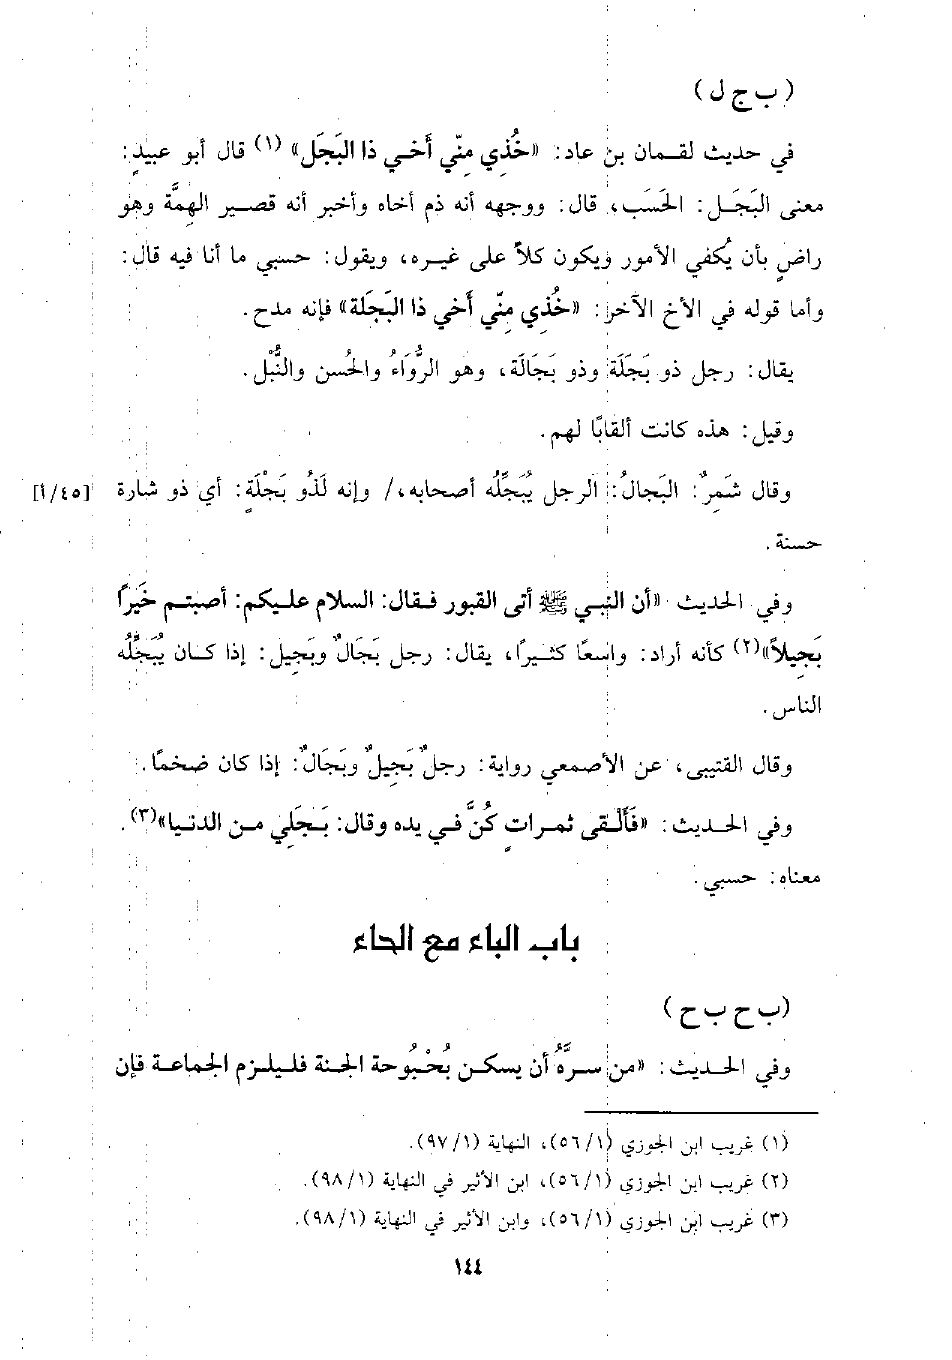 (ب ج ل)
في حديث لقمان بن عاد: «خُذي مِنّي أَخي ذا البَجَل» (١) قال أبو عبيدٍ:
معنى البَجَل: الحَسَب، قال: ووجهه أنه ذم أخاه وأخبر أنه قصير الهِمَّة وهو
راضٍ بأن يُكفي الأمور ويكون كلاً على غيره، ويقول: حسبي ما أنا فيه قال:
وأما قوله في الأخ الآخر: «خُذي مِنّي أَخي ذا البَجَلة» فإنه مدح.
يقال: رجل ذو بَجَلَة وذو بَجَالَة، وهو الرُّوَاءُ والحُسن والنُّبْل.
وقيل: هذه كانت ألقابًا لهم.
وقال شَمِرٌ: البَجالُ: الرجل يُبَجِّلُه أصحابه،/ وإنه لَذُو بَجْلَةٍ: أي ذو شارة [٤٥/أ]
حسنة.
وفي الحديث «أن النبي ﷺ أتى القبور فقال: السلام عليكم: أصبتم خَيرًا
بَجِيلاً»(٢) كأنه أراد: واسعًا كثيرًا، يقال: رجل بَجَالٌ وبَجِيل: إذا كان يُبَجِّلُه
الناس.
وقال القتيبى، عن الأصمعي رواية: رجلٌ بَجِيلٌ وبَجَالٌ: إذا كان ضخمًا.
وفي الحديث: «فَأَلقى ثمراتٍ كُنَّ في يده وقال: بَجَلِي من الدنيا»(٣).
معناه: حسبي.
باب الباء مع الحاء
(ب ح ب ح)
وفي الحديث: «من سرَّهُ أن يسكن بُحْبُوحة الجنة فليلزم الجماعة فإن
(١) غريب ابن الجوزي (٥٦/١)، النهاية (٩٧/١).
(٢) غريب ابن الجوزي (٥٦/١)، ابن الأثير في النهاية (٩٨/١).
(٣) غريب ابن الجوزي (٥٦/١)، وابن الأثير في النهاية (٩٨/١).
١٤٤